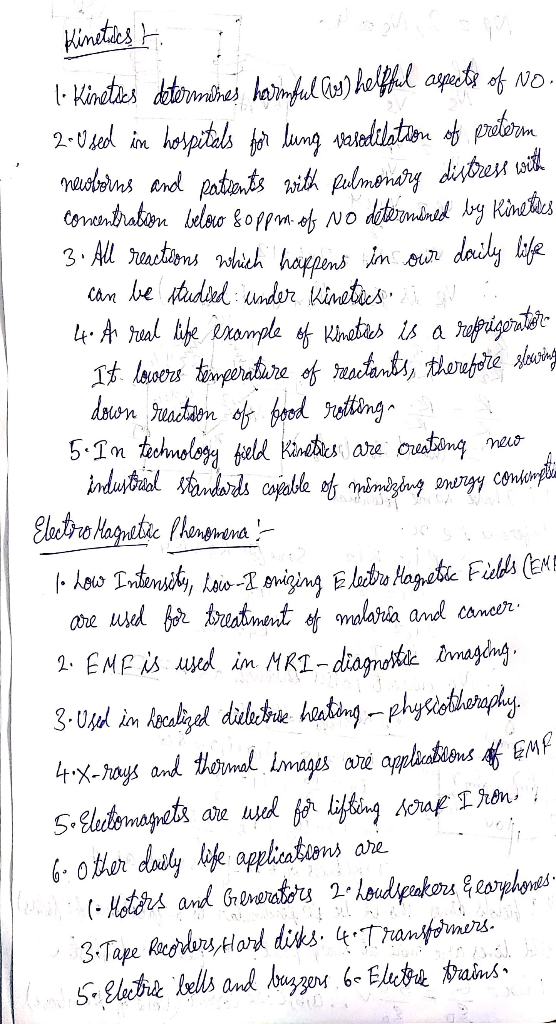 Kinetics :-
1. Kinetics determines harmful (vs) helpful aspects of NO.
2. Used in hospitals for lung vasodilation of preterm
newborns and patients with Pulmonary distress with
concentration below 80ppm of NO determined by Kinetics
3. All reactions which happens in our daily life
can be studied under Kinetics.
4. A real life example of Kinetics is a refrigerator
It lowers temperature of reactants, therefore slowing
down reaction of food rotting.
5. In technology field Kinetics are creating new
industrial standards capable of mimizing energy consumpti
Electro Magnetic Phenomena :-
1. Low Intensity, Low-Ionizing Electro Magnetic Fields (EMF
are used for treatment of malaria and cancer.
2. EMF is used in MRI - diagnostic imaging.
3. Used in localized dielectric heating - physiotheraphy.
4. X-rays and thermal images are applications of EMF
5. Electomagnets are used for lifting scrap Iron.
6. Other daily life applications are
1. Motors and Generators 2. Loudspeakers & earphones.
3. Tape Recorders, Hard disks. 4. Transformers.
5. Electric bells and buzzers 6. Electric trains.